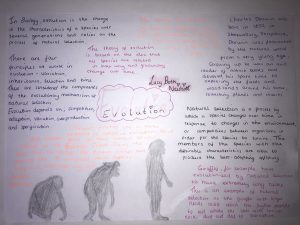 In Biology evolution is the change
in the characteristics of a species over
several generations and relies on the
process of natural selection
There are four
principles at work in
evolution - variation,
inheritance, selection and time.
These are considered the components
of the evolutionary mechanism of
natural selection
Evolution depends on, competition,
adaptation, variation, overproduction
and speciation
The theory of evolution
is based on the idea that
all species are related
and gradually
change over time
Lucy Beth
Evolution
Charles Darwin
was born in
Shrewsbury, Shropshire.
Darwin was fascinated
by the natural world
from a very young age.
Growing up he was an avid
reader of nature books and
devoted his spare time to
exploring the fields and
woodlands around his home
collecting plants and insects
Natural selection is a process by
which a species changes over time in
response to change in the environment,
or competition between organisms, in
order for the species to survive. The
members of the species with the
desirable characteristics are able to
produce the best-adapting offspring
Giraffes, for example have
evolved
to have extremely long necks
This is an example of natural
selection as the
necks could reach the
to eat while the
necks did not survive